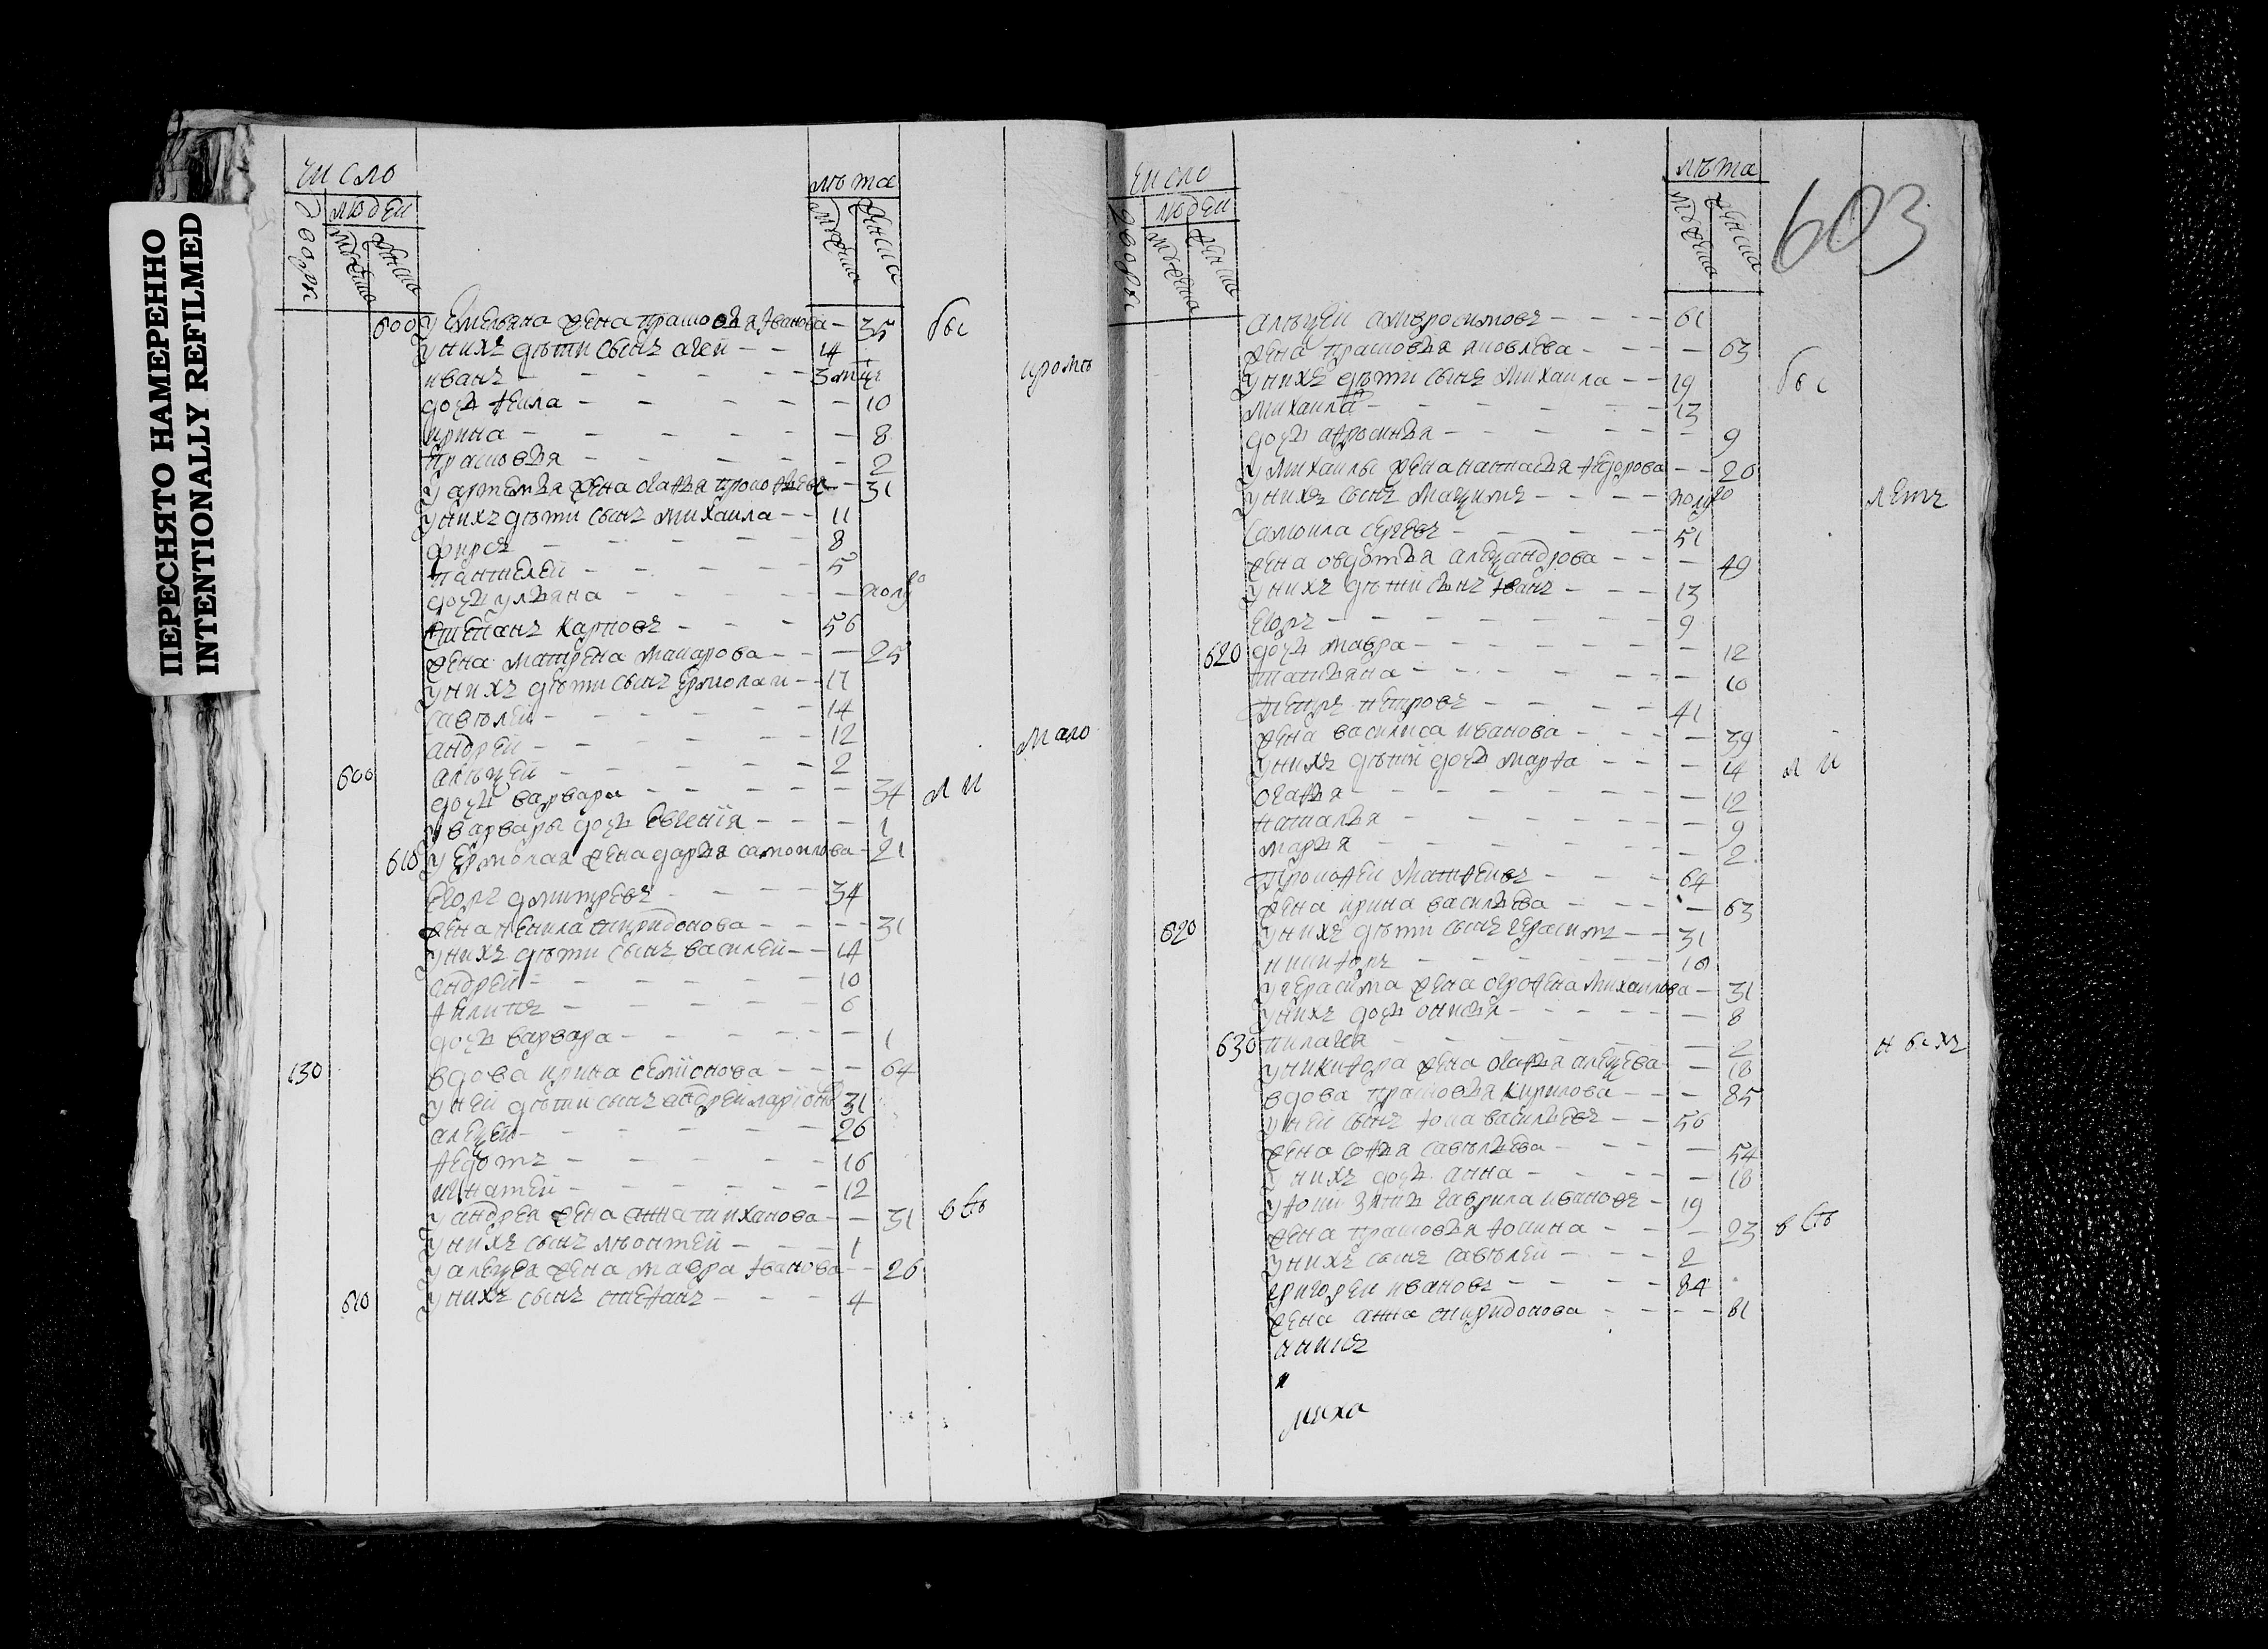 ПЕРЕСНЯТО НАМЕРЕННО
INTENTIONALLY REFILMED
число
людей
лѣта
600 у Емельяна жена прасковья Иванова 35 бы
у нихъ дѣти сынъ агей 14
иванъ 3 кромѣ
дочь 10
ирина 8
прасковья 2
у артемья жена агафья прокофьева 31
у нихъ дѣти сынъ михаила 11
фирсъ 8
пантелей 5
дочь ульяна полуго
степанъ карповъ 56
жена матрена макарова 25
у нихъ дѣти сынъ ермолаи 17
савѣлей 14
андрей 12 мало
600 алѣѯей 2
дочь варвара 34 л и
у варвары дочь евгенїя 1
610 у ермолая жена дарья самоилова 21
егоръ дмитревъ 34
жена ненила спиридонова 31
у нихъ дѣти сынъ василей 14
андрей 10
филипъ 6
дочь варвара 1
130 вдова ирина семїонова 64
у ней дѣти сынъ андрей ларїоно 31
алеѯей 26
федотъ 16
игнатей 12
у андрея жена анна тиханова 31 в сѣ
у нихъ сынъ лѣонтей 1
у алеѯея жена мавра иванова 26
610 у нихъ сынъ стефанъ 4
603
число
людей
лѣта
алѣѯей амвросимовъ 61
жена прасковья яковлева 63
у нихъ дѣти сынъ михаила 19 бы
михаила 13
дочь афросинья 9
у михаилы жена настасья федорова 20
у нихъ сынъ маѯимъ полуго летъ
самоила сергевъ 51
жена овдотья алеѯандрова 49
у нихъ дѣти сынъ иванъ 13
егоръ 9
620 дочь мавра 12
татьяна 10
петръ петровъ 41
жена василиса иванова 39
у нихъ дѣти дочь марфа 14 л и
агафья 12
наталья 9
марья 2
прокофеи матфеивъ 64
жена ирина васильева 63
620 у нихъ дѣти сынъ герасимъ 31
никифоръ 18
у герасима жена огрофена михаилова 31
у нихъ дочь онисья 8
630 пилагея 2 н ыхъ
у никифора жена агафья алеѯева 18
вдова прасковья кирилова 85
у ней сынъ фома васильевъ 56
жена софья савѣльева 54
у нихъ дочь анна 18
у фоми зять гаврила ивановъ 19
жена прасковья фомина 23 в сѣ
у нихъ сынъ савѣлей 2
григореи ивановъ 84
жена анна спиридонова 81
миха